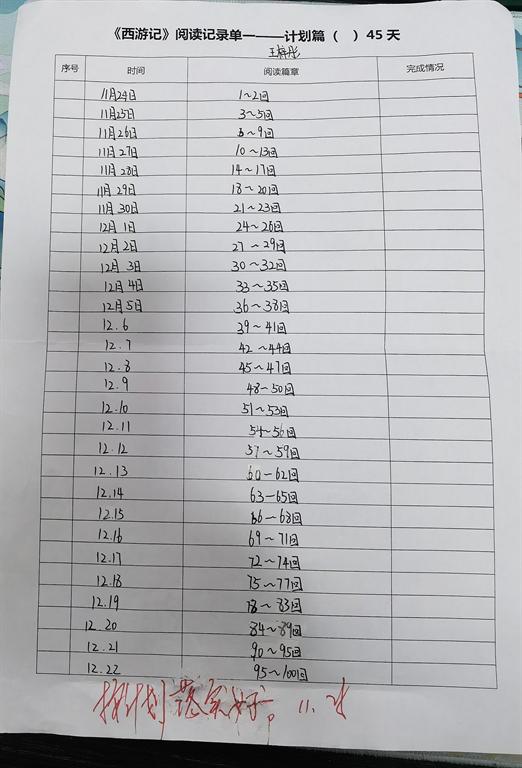 《西游记》阅读记录单一——计划篇（ ）45天
王梓彤
序号 时间 阅读篇章 完成情况
11月24日 1~2回
11月25日 3~5回
11月26日 6~9回
11月27日 10~13回
11月28日 14~17回
11月29日 18~20回
11月30日 21~23回
12月1日 24~26回
12月2日 27~29回
12月3日 30~32回
12月4日 33~35回
12月5日 36~38回
12.6 39~41回
12.7 42~44回
12.8 45~47回
12.9 48-50回
12.10 51~53回
12.11 54~56回
12.12 57~59回
12.13 60-62回
12.14 63-65回
12.15 66-68回
12.16 69~71回
12.17 72~74回
12.18 75~77回
12.19 78~83回
12.20 84~89回
12.21 90~95回
12.22 95~100回
按计划落实好。11.